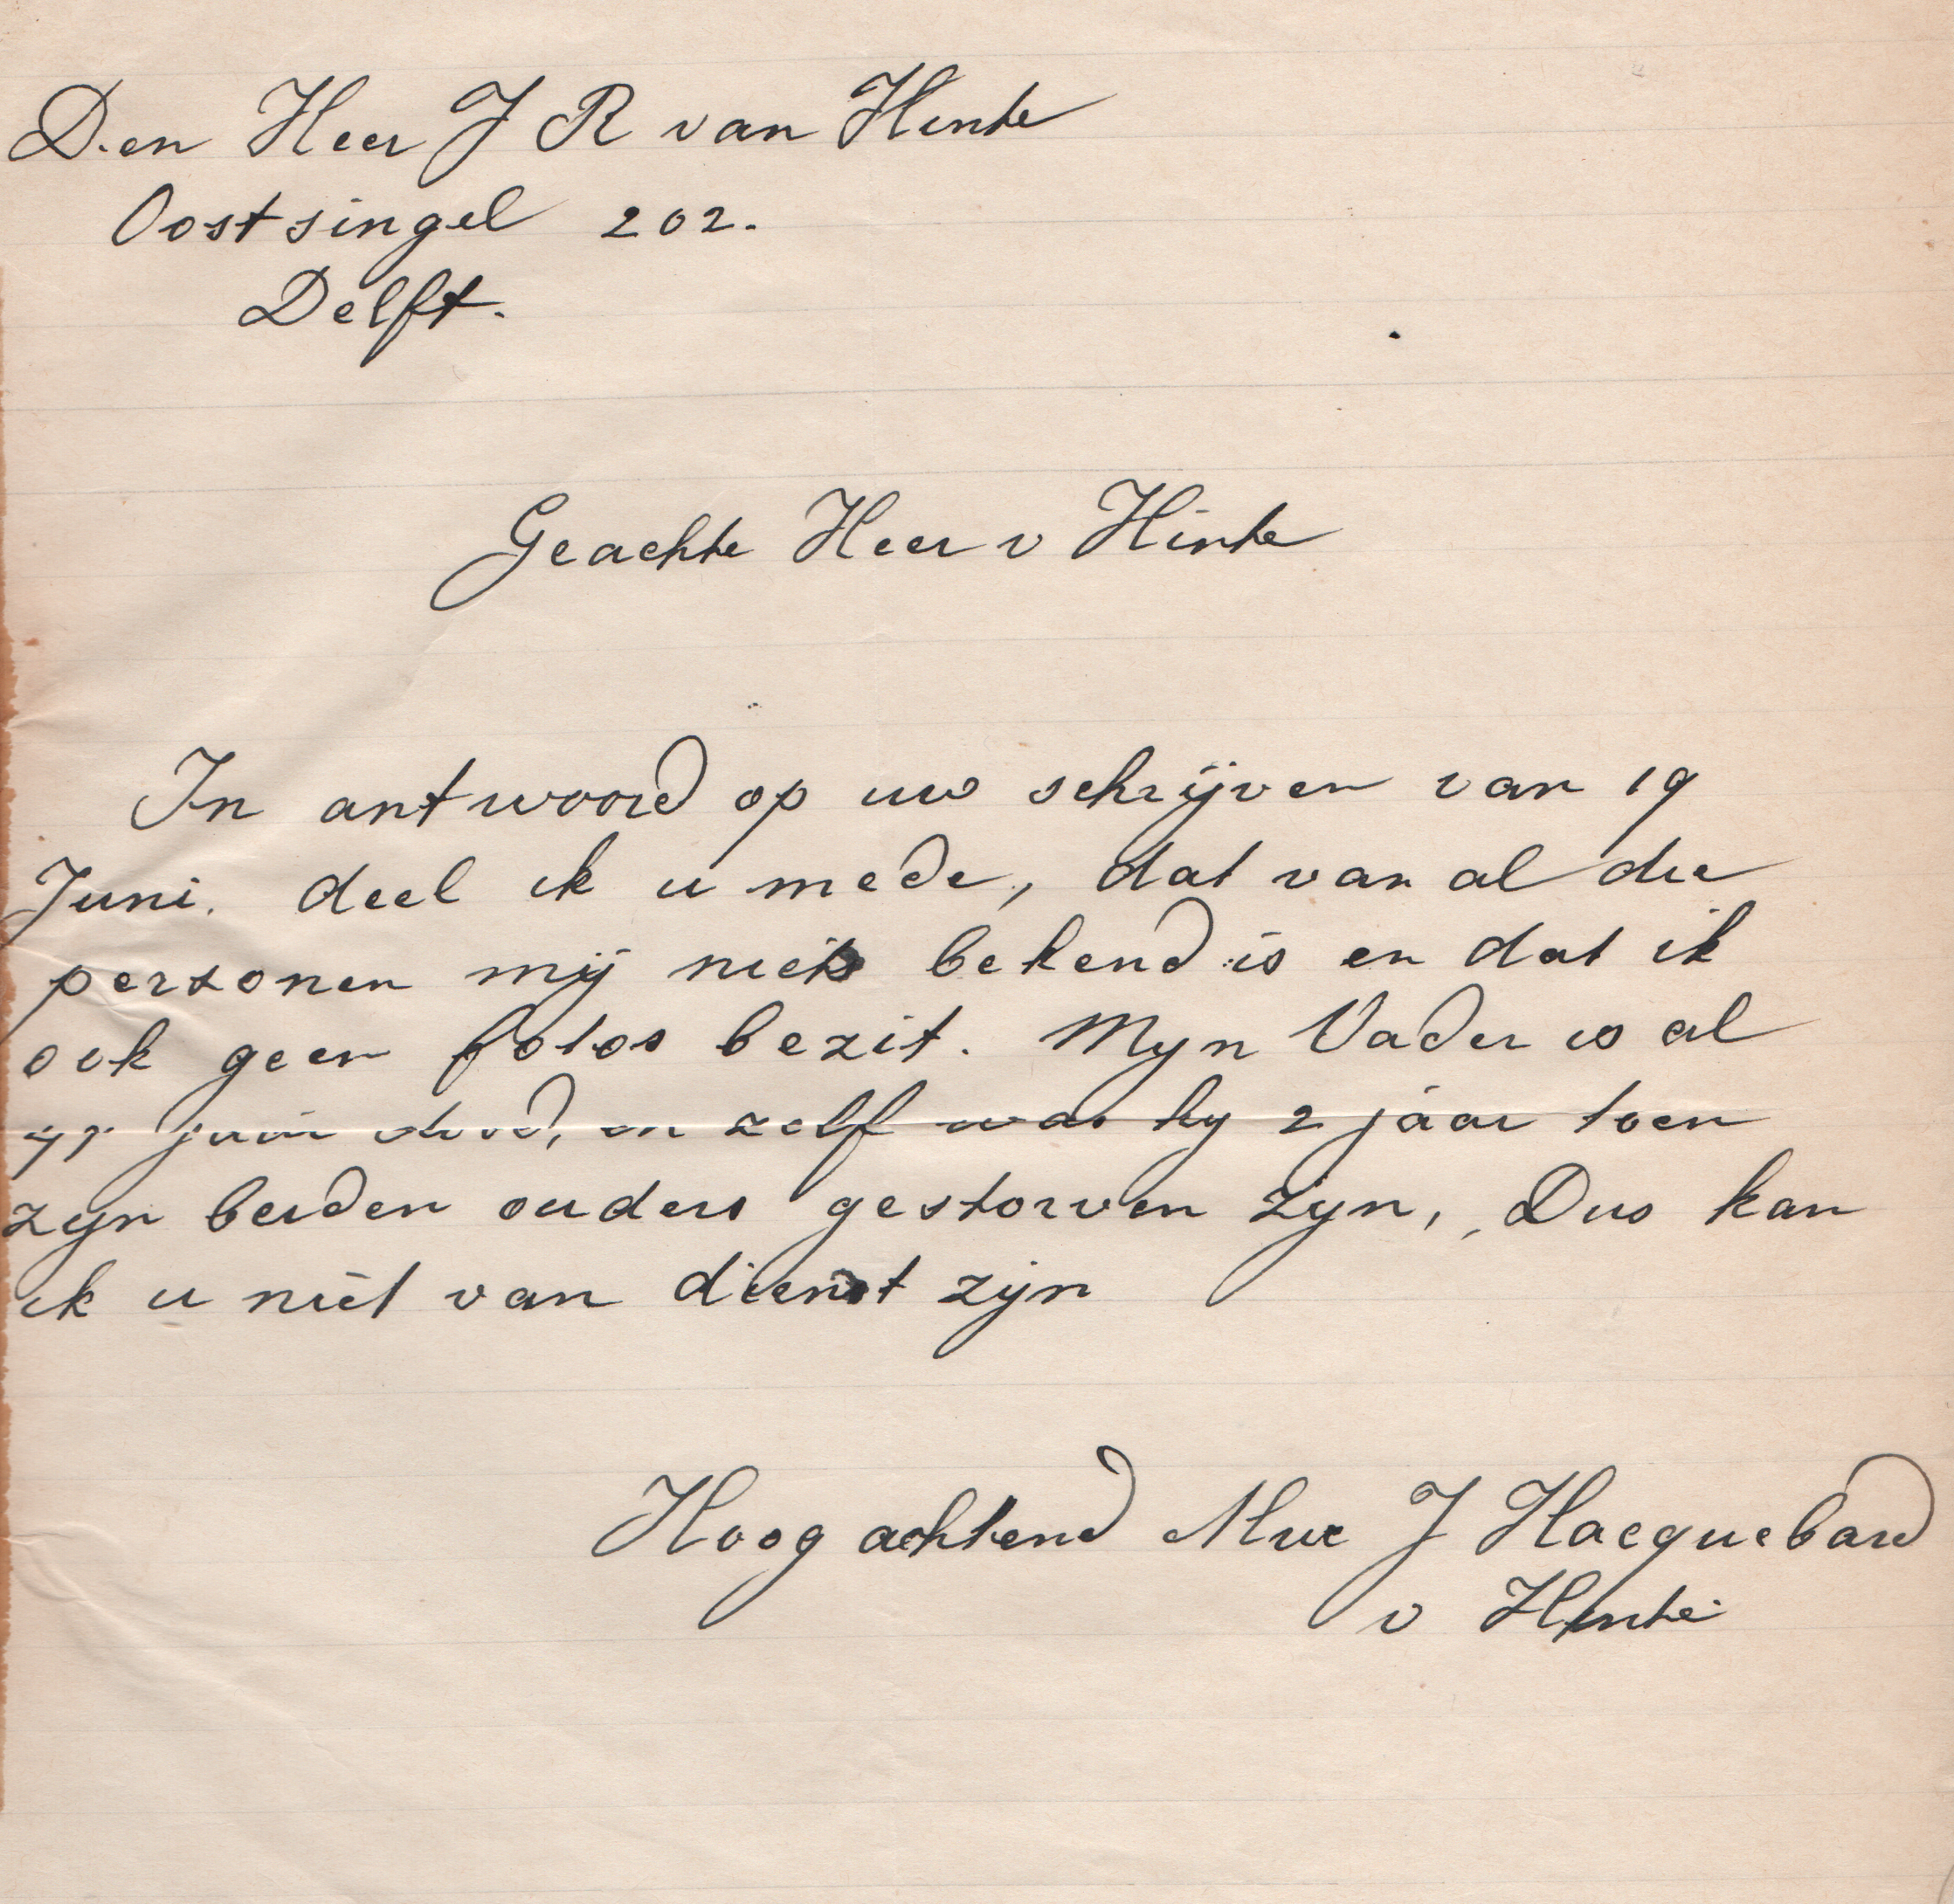 Den Heer J R van Hinte
Oostsingel 202.
Delft.
Geachte Heer v Hinte
In antwoord op uw schrijven van 19
Juni. deel ik u mede, dat van al die
personen mij niets bekend is en dat ik
ook geen fotos bezit. Mijn Vader is al
jaar dood, en zelf was hy 2 jaar toen
zyn beiden ouders gestorven zyn, Dus kan
ik u niet van dienst zijn
Hoog achtend Mve J Hacquebard
v Hinte